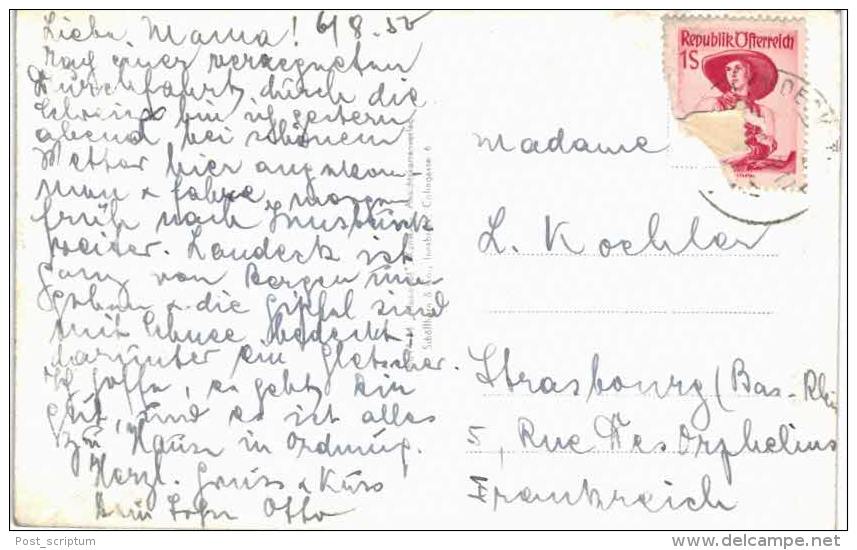 Liebe Mama! 6/8.50
Nach einer verregneten
Durchfahrt durch die
Schweiz bin ich gestern
abend bei schönem
Wetter hier angekom
men & fahre morgen
früh nach Innsbruck
weiter. Landeck ist
ganz von Bergen um
geben & die Gipfel sind
mit Schnee bedeckt
darunter ein Gletscher.
Ich hoffe, es geht Dir
gut, und es ist alles
zu Hause in Ordnung.
Herzl. Gruss & Kuss
Dein Sohn Otto
Schöllhorn & Co., Innsbruck, Colingasse 6
Republik Österreich
1S
Madame
L. Koehler
Strasbourg (Bas-Rhin
5, Rue Des Orphelins
Frankreich
Post_scriptum
www.delcampe.net